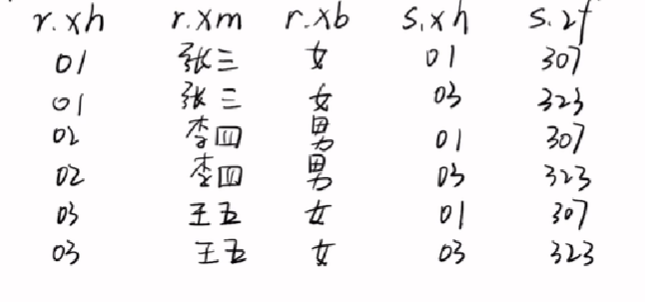 r.xh r.xm r.xb s.xh s.zf
01 张三 女 01 307
01 张三 女 03 323
02 李四 男 01 307
02 李四 男 03 323
03 王五 女 01 307
03 王五 女 03 323